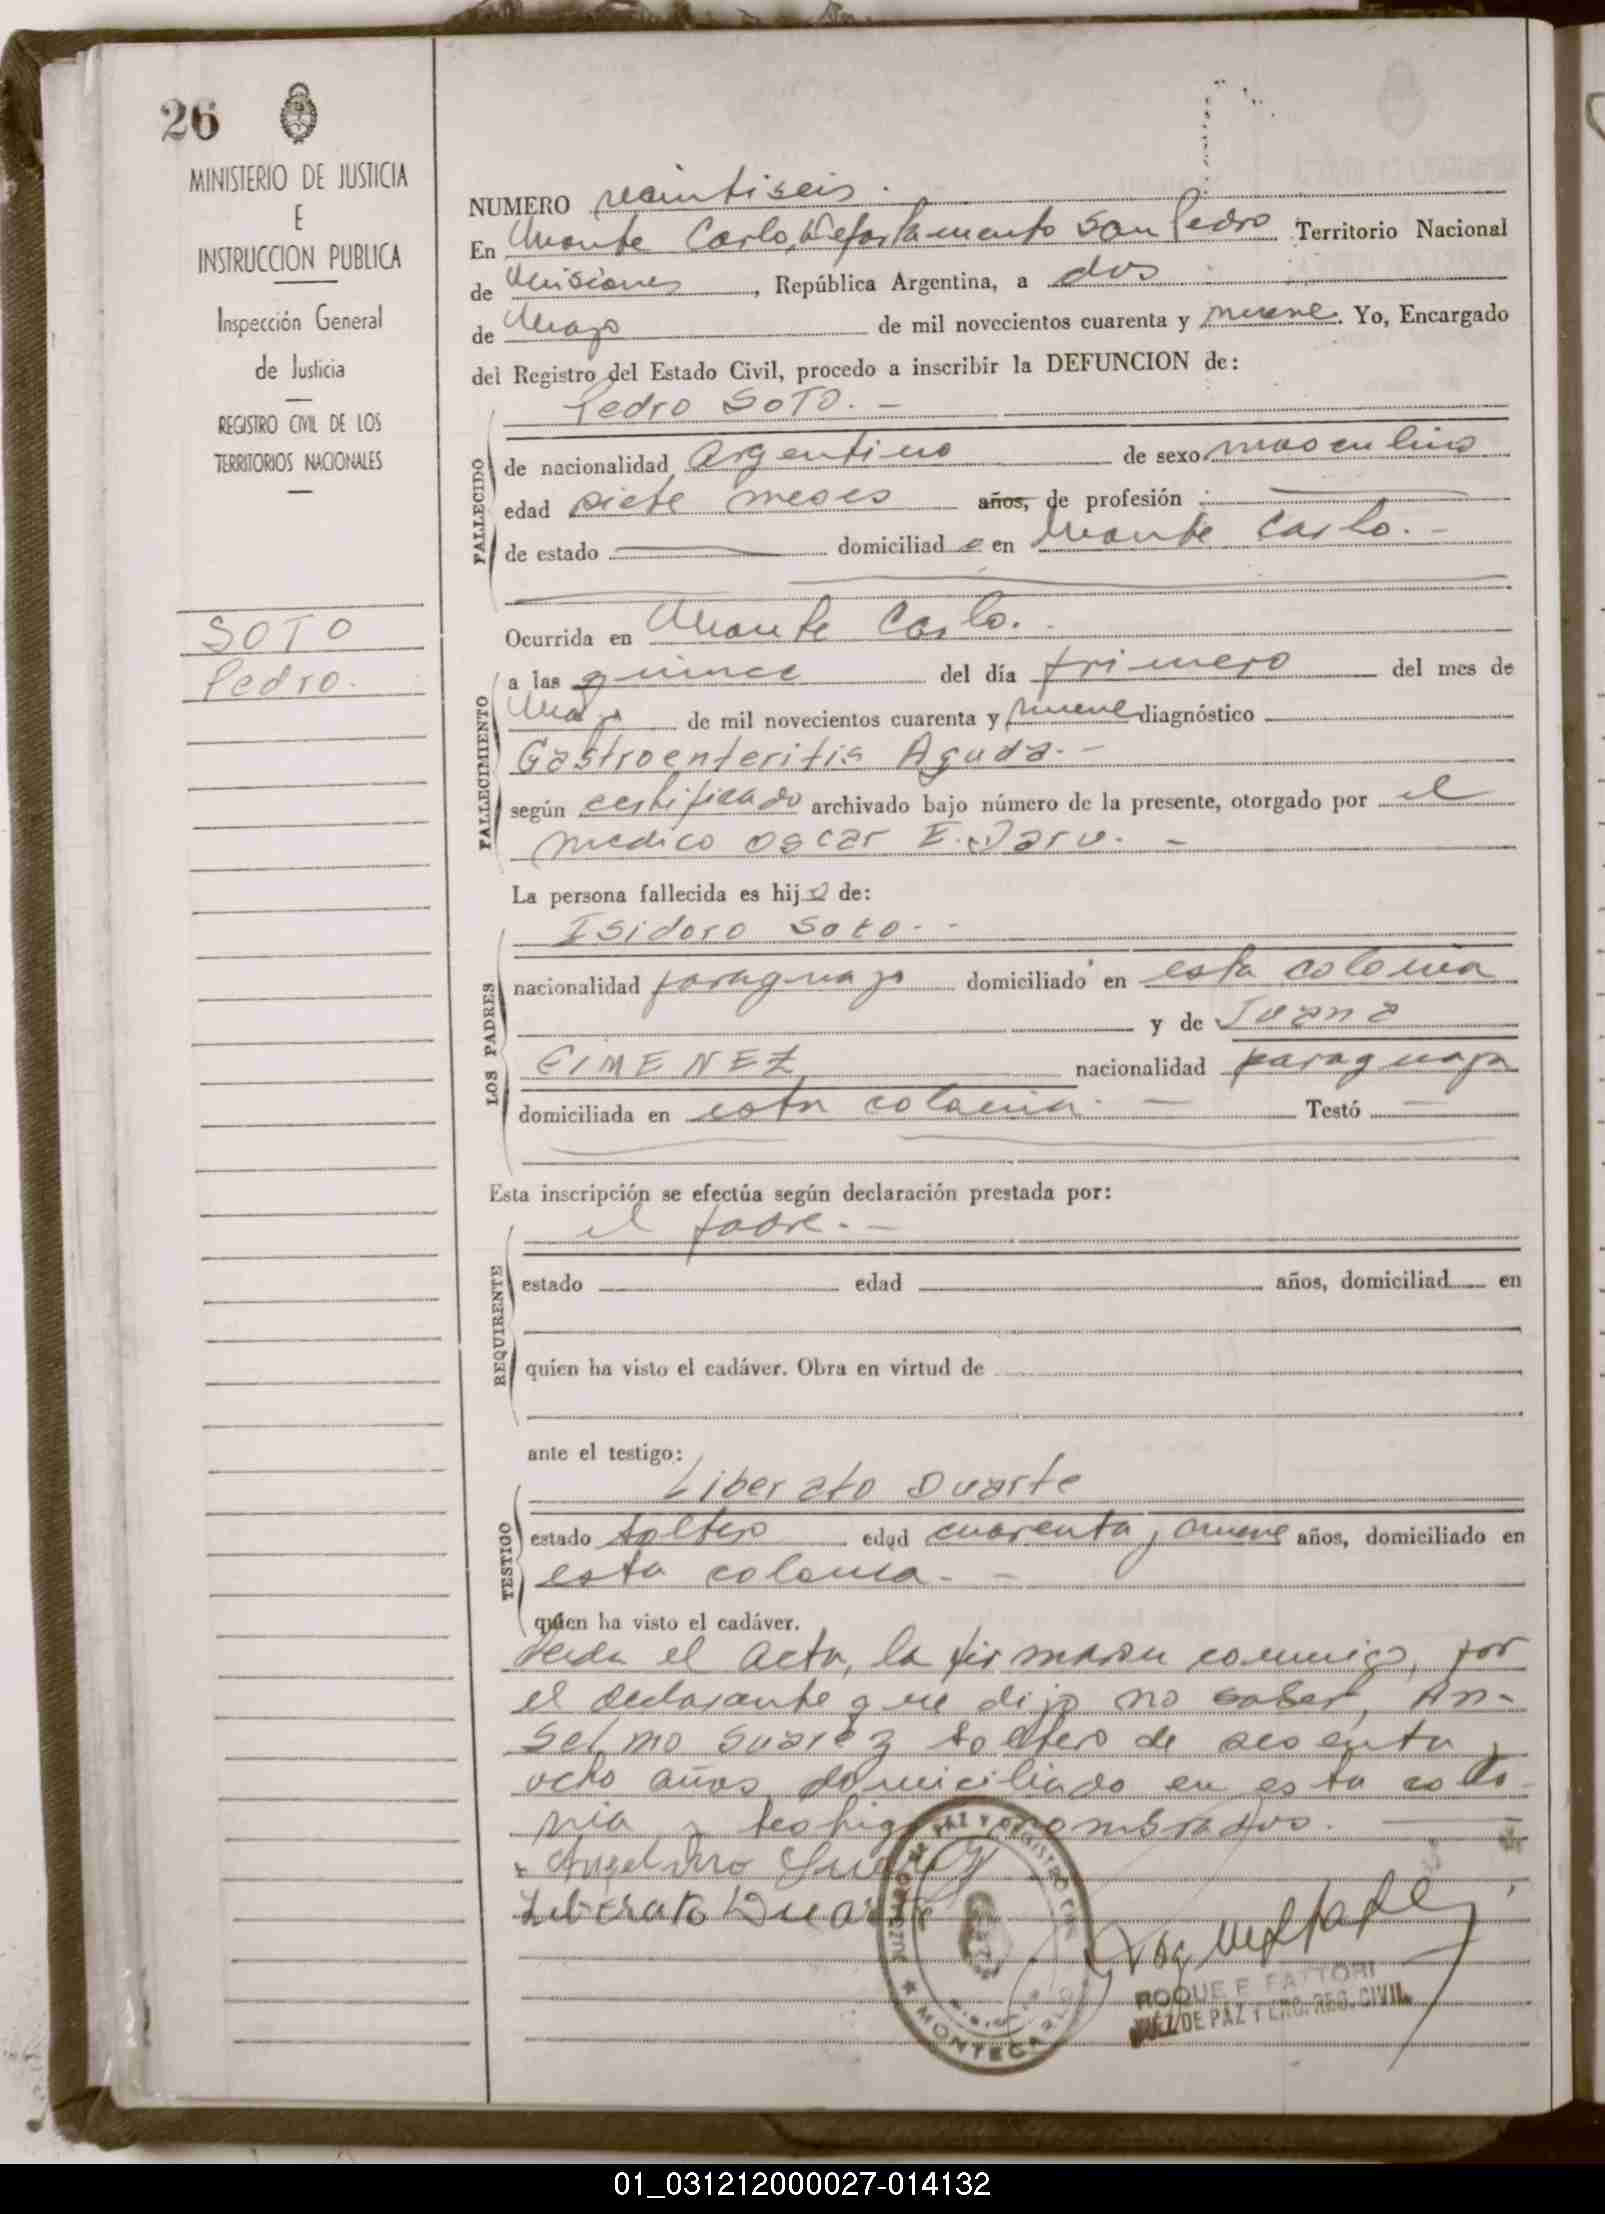 26
MINISTERIO DE JUSTICIA
E
INSTRUCCION PUBLICA
Inspección General
de Justicia
REGISTRO CIVIL DE LOS
TERRITORIOS NACIONALES
SOTO
Pedro.
NUMERO veintiseis.
En Monte Carlo, Departamento San Pedro Territorio Nacional
de Misiones, República Argentina, a dos
de Mayo de mil novecientos cuarenta y nueve. Yo, Encargado
del Registro del Estado Civil, procedo a inscribir la DEFUNCION de:
Pedro SOTO. -
FALLECIDO
de nacionalidad Argentino de sexo masculino
edad siete meses años, de profesión
de estado domiciliado en Monte Carlo. -
FALLECIMIENTO
Ocurrida en Monte Carlo.
a las quince del día primero del mes de
Mayo de mil novecientos cuarenta y nueve diagnóstico
Gastroenteritis Aguda. -
según certificado archivado bajo número de la presente, otorgado por el
medico Oscar E. Daru. -
La persona fallecida es hijo de:
LOS PADRES
Isidoro Soto. -
nacionalidad paraguayo domiciliado en esta colonia
y de Juana
GIMENEZ nacionalidad paraguaya
domiciliada en esta colonia. - Testó
Esta inscripción se efectúa según declaración prestada por:
REQUIRENTE
el padre. -
estado edad años, domiciliad en
quien ha visto el cadáver. Obra en virtud de
ante el testigo:
TESTIGO
Liberato Duarte
estado soltero edad cuarenta y nueve años, domiciliado en
esta colonia. -
quien ha visto el cadáver.
Leida el acta, la firmaron conmigo, por
el declarante que dijo no saber, An-
selmo Suarez soltero de sesenta y
ocho años domiciliado en esta colo-
nia y testigo nombrados. -
Liberato Duarte
JUZGADO DE PAZ Y REGISTRO CIVIL
MONTECARLO
ROQUE E. FATTORI
JUEZ DE PAZ Y ENC. REG. CIVIL
01_031212000027-014132